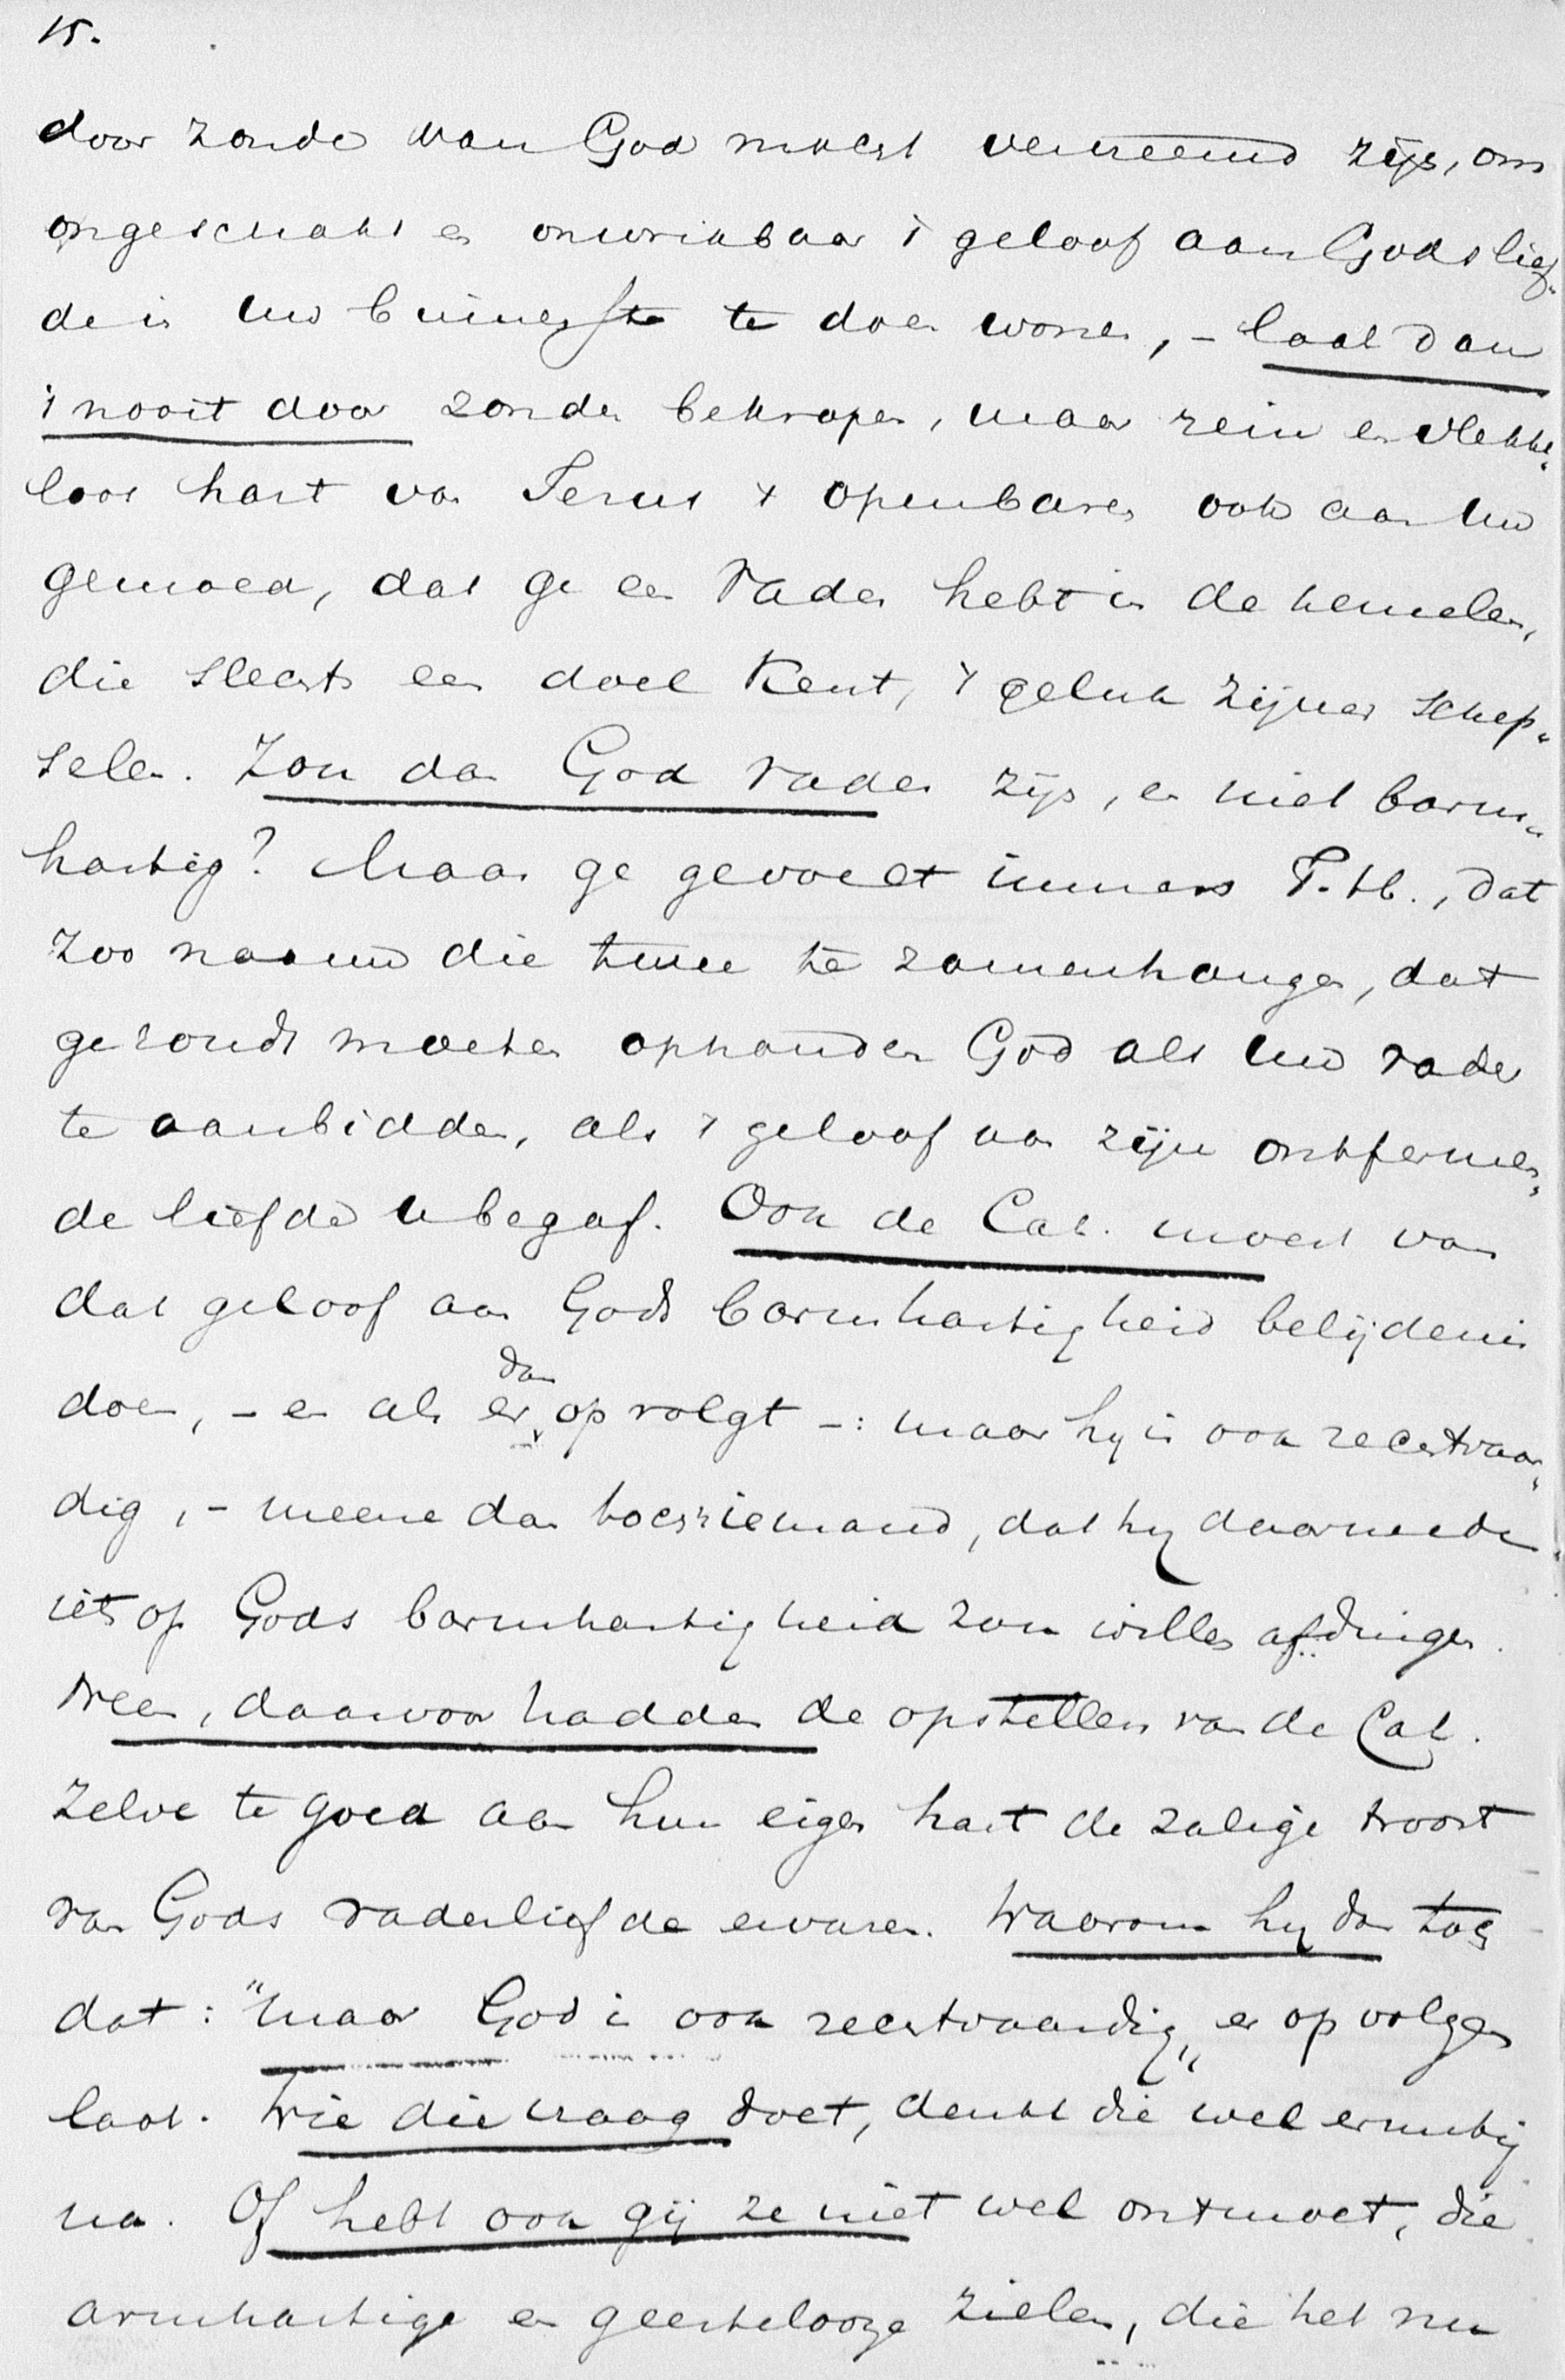 15.
door zonde van God moest vervreemd zijn, om
ongeschokt en onwrikbaar 't geloof aan Gods lief-
de in uw binnenste te doen wonen, - laat dan
't nooit door zonden bekropen, maar rein en vlekke-
loos hart van Jezus 't openbaren ook aan uw
gemoed, dat ge een Vader hebt in de hemelen,
die slechts een doel kent, 't geluk zijner schep-
selen. Zou dan God Vader zijn, en niet barm-
hartig? Maar ge gevoelt immers T. H., dat
zoo naauw die twee te zamenhangen, dat
ge zoudt moeten ophouden God als uw Vader
te aanbidden, als 't geloof aan zijn ontfermen-
de liefde u begaf. Ook de Cat. moest van
dat geloof aan Gods barmhartigheid belijdenis
doen, - en als er dan op volgt -: maar hij is ook rechtvaar-
dig, - meene dan toch niemand, dat hij daarmede
iets op Gods barmhartigheid zou willen afdingen.
Neen, daarvoor hadden de opstellers van de Cat.
zelve te goed aan hun eigen hart de zalige troost
van Gods vaderliefde ervaren. Waarom hij dan toch
dat: "maar God is ook rechtvaardig" er op volgen
laat. Wie die vraag doet, denkt die wel ernstig
na. Of hebt ook gij ze niet wel ontmoet, die
armhartige en geestelooze zielen, die het nu